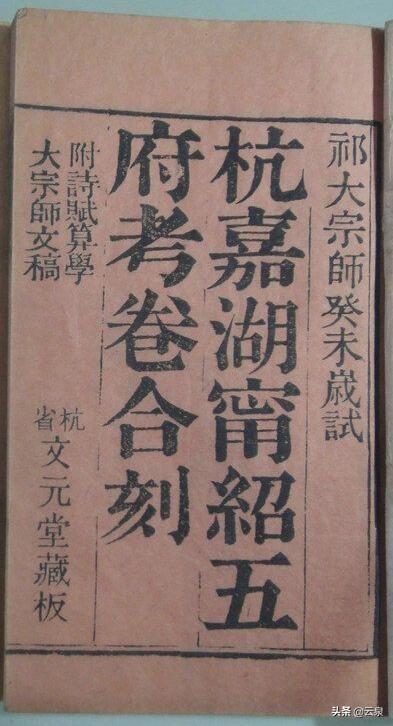 祁大宗師癸未歲試
杭嘉湖甯紹五
府考卷合刻
附詩賦算學
大宗師文稿
杭省文元堂藏板
头条 @云泉